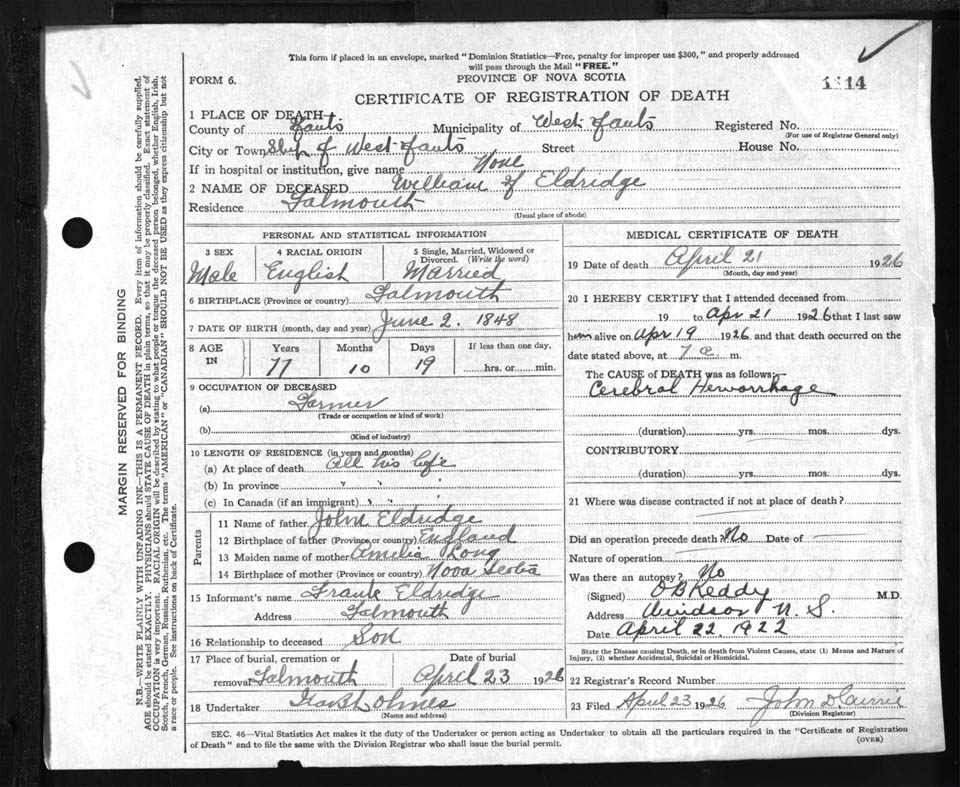 This form if placed in an envelope, marked "Dominion Statistics—Free, penalty for improper use $300," and properly addressed
will pass through the Mail "FREE."
FORM 6.
PROVINCE OF NOVA SCOTIA
1614
CERTIFICATE OF REGISTRATION OF DEATH
1 PLACE OF DEATH
County of Hants Municipality of West Hants Registered No.
(For use of Registrar General only)
City or Town Ship of West Hants Street House No.
If in hospital or institution, give name None
2 NAME OF DECEASED William J Eldridge
Residence Falmouth
(Usual place of abode)
PERSONAL AND STATISTICAL INFORMATION
3 SEX 4 RACIAL ORIGIN 5 Single, Married, Widowed or
Divorced. (Write the word)
Male English Married
6 BIRTHPLACE (Province or country) Falmouth
7 DATE OF BIRTH (month, day and year) June 2. 1848
8 AGE IN Years Months Days If less than one day,
77 10 19 hrs. or min.
9 OCCUPATION OF DECEASED
(a) Farmer
(Trade or occupation or kind of work)
(b)
(Kind of industry)
10 LENGTH OF RESIDENCE (in years and months)
(a) At place of death All his life
(b) In province " " "
(c) In Canada (if an immigrant) " " "
Parents
11 Name of father John Eldridge
12 Birthplace of father (Province or country) England
13 Maiden name of mother Amelia Long
14 Birthplace of mother (Province or country) Nova Scotia
15 Informant's name Frank Eldridge
Address Falmouth
16 Relationship to deceased Son
17 Place of burial, cremation or Date of burial
removal Falmouth April 23 1926
18 Undertaker
(Name and address)
MEDICAL CERTIFICATE OF DEATH
19 Date of death April 21 1926
(Month, day and year)
20 I HEREBY CERTIFY that I attended deceased from
19 to Apr 21 1926 that I last saw
him alive on Apr 19 1926 and that death occurred on the
date stated above, at 7 a m.
The CAUSE of DEATH was as follows:
Cerebral Hemorrhage
(duration) yrs. mos. dys.
CONTRIBUTORY
(duration) yrs. mos. dys.
21 Where was disease contracted if not at place of death?
Did an operation precede death? No Date of
Nature of operation
Was there an autopsy? No
(Signed) O B Keddy M.D.
Address Windsor N. S.
Date April 22. 1922
State the Disease causing Death, or in death from Violent Causes, state (1) Means and Nature of
Injury, (2) whether Accidental, Suicidal or Homicidal.
22 Registrar's Record Number
23 Filed April 23 1926 John D Currie
(Division Registrar)
SEC. 46—Vital Statistics Act makes it the duty of the Undertaker or person acting as Undertaker to obtain all the particulars required in the "Certificate of Registration
of Death" and to file the same with the Division Registrar who shall issue the burial permit. (OVER)
MARGIN RESERVED FOR BINDING
N.B.—WRITE PLAINLY WITH UNFADING INK—THIS IS A PERMANENT RECORD. Every item of information should be carefully supplied.
AGE should be stated EXACTLY. PHYSICIANS should STATE CAUSE OF DEATH in plain terms, so that it may be properly classified. Exact statement of
OCCUPATION is very important. RACIAL ORIGIN will be described by stating to what people or tongue the deceased person belonged, whether English, Irish,
Scotch, French, German, Russian, Ruthenian, etc. The terms "AMERICAN" or "CANADIAN" SHOULD NOT BE USED as they express citizenship but not
a race or people. See instructions on back of Certificate.